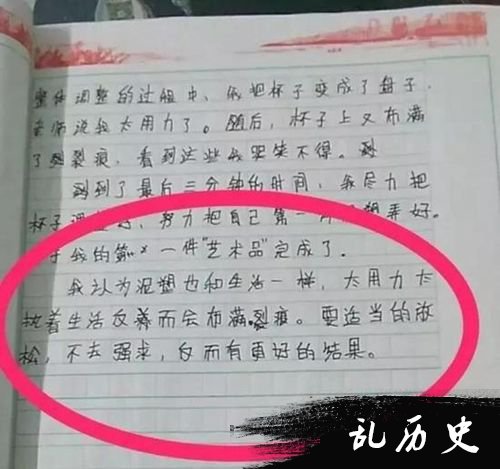 整体调整的过程中，我把杯子变成了盘子，
老师说我太用力了。随后，杯子上又布满
了裂痕，看到这些我哭笑不得。
到了最后三分钟的时间，我尽力把
杯子调整好，努力把自己第一件泥塑弄好。
我的第一件"艺术品"完成了。
我认为泥塑也和生活一样，太用力太
执着生活反而会布满裂痕。要适当的放
松，不去强求，反而有更好的结果。
乱历史